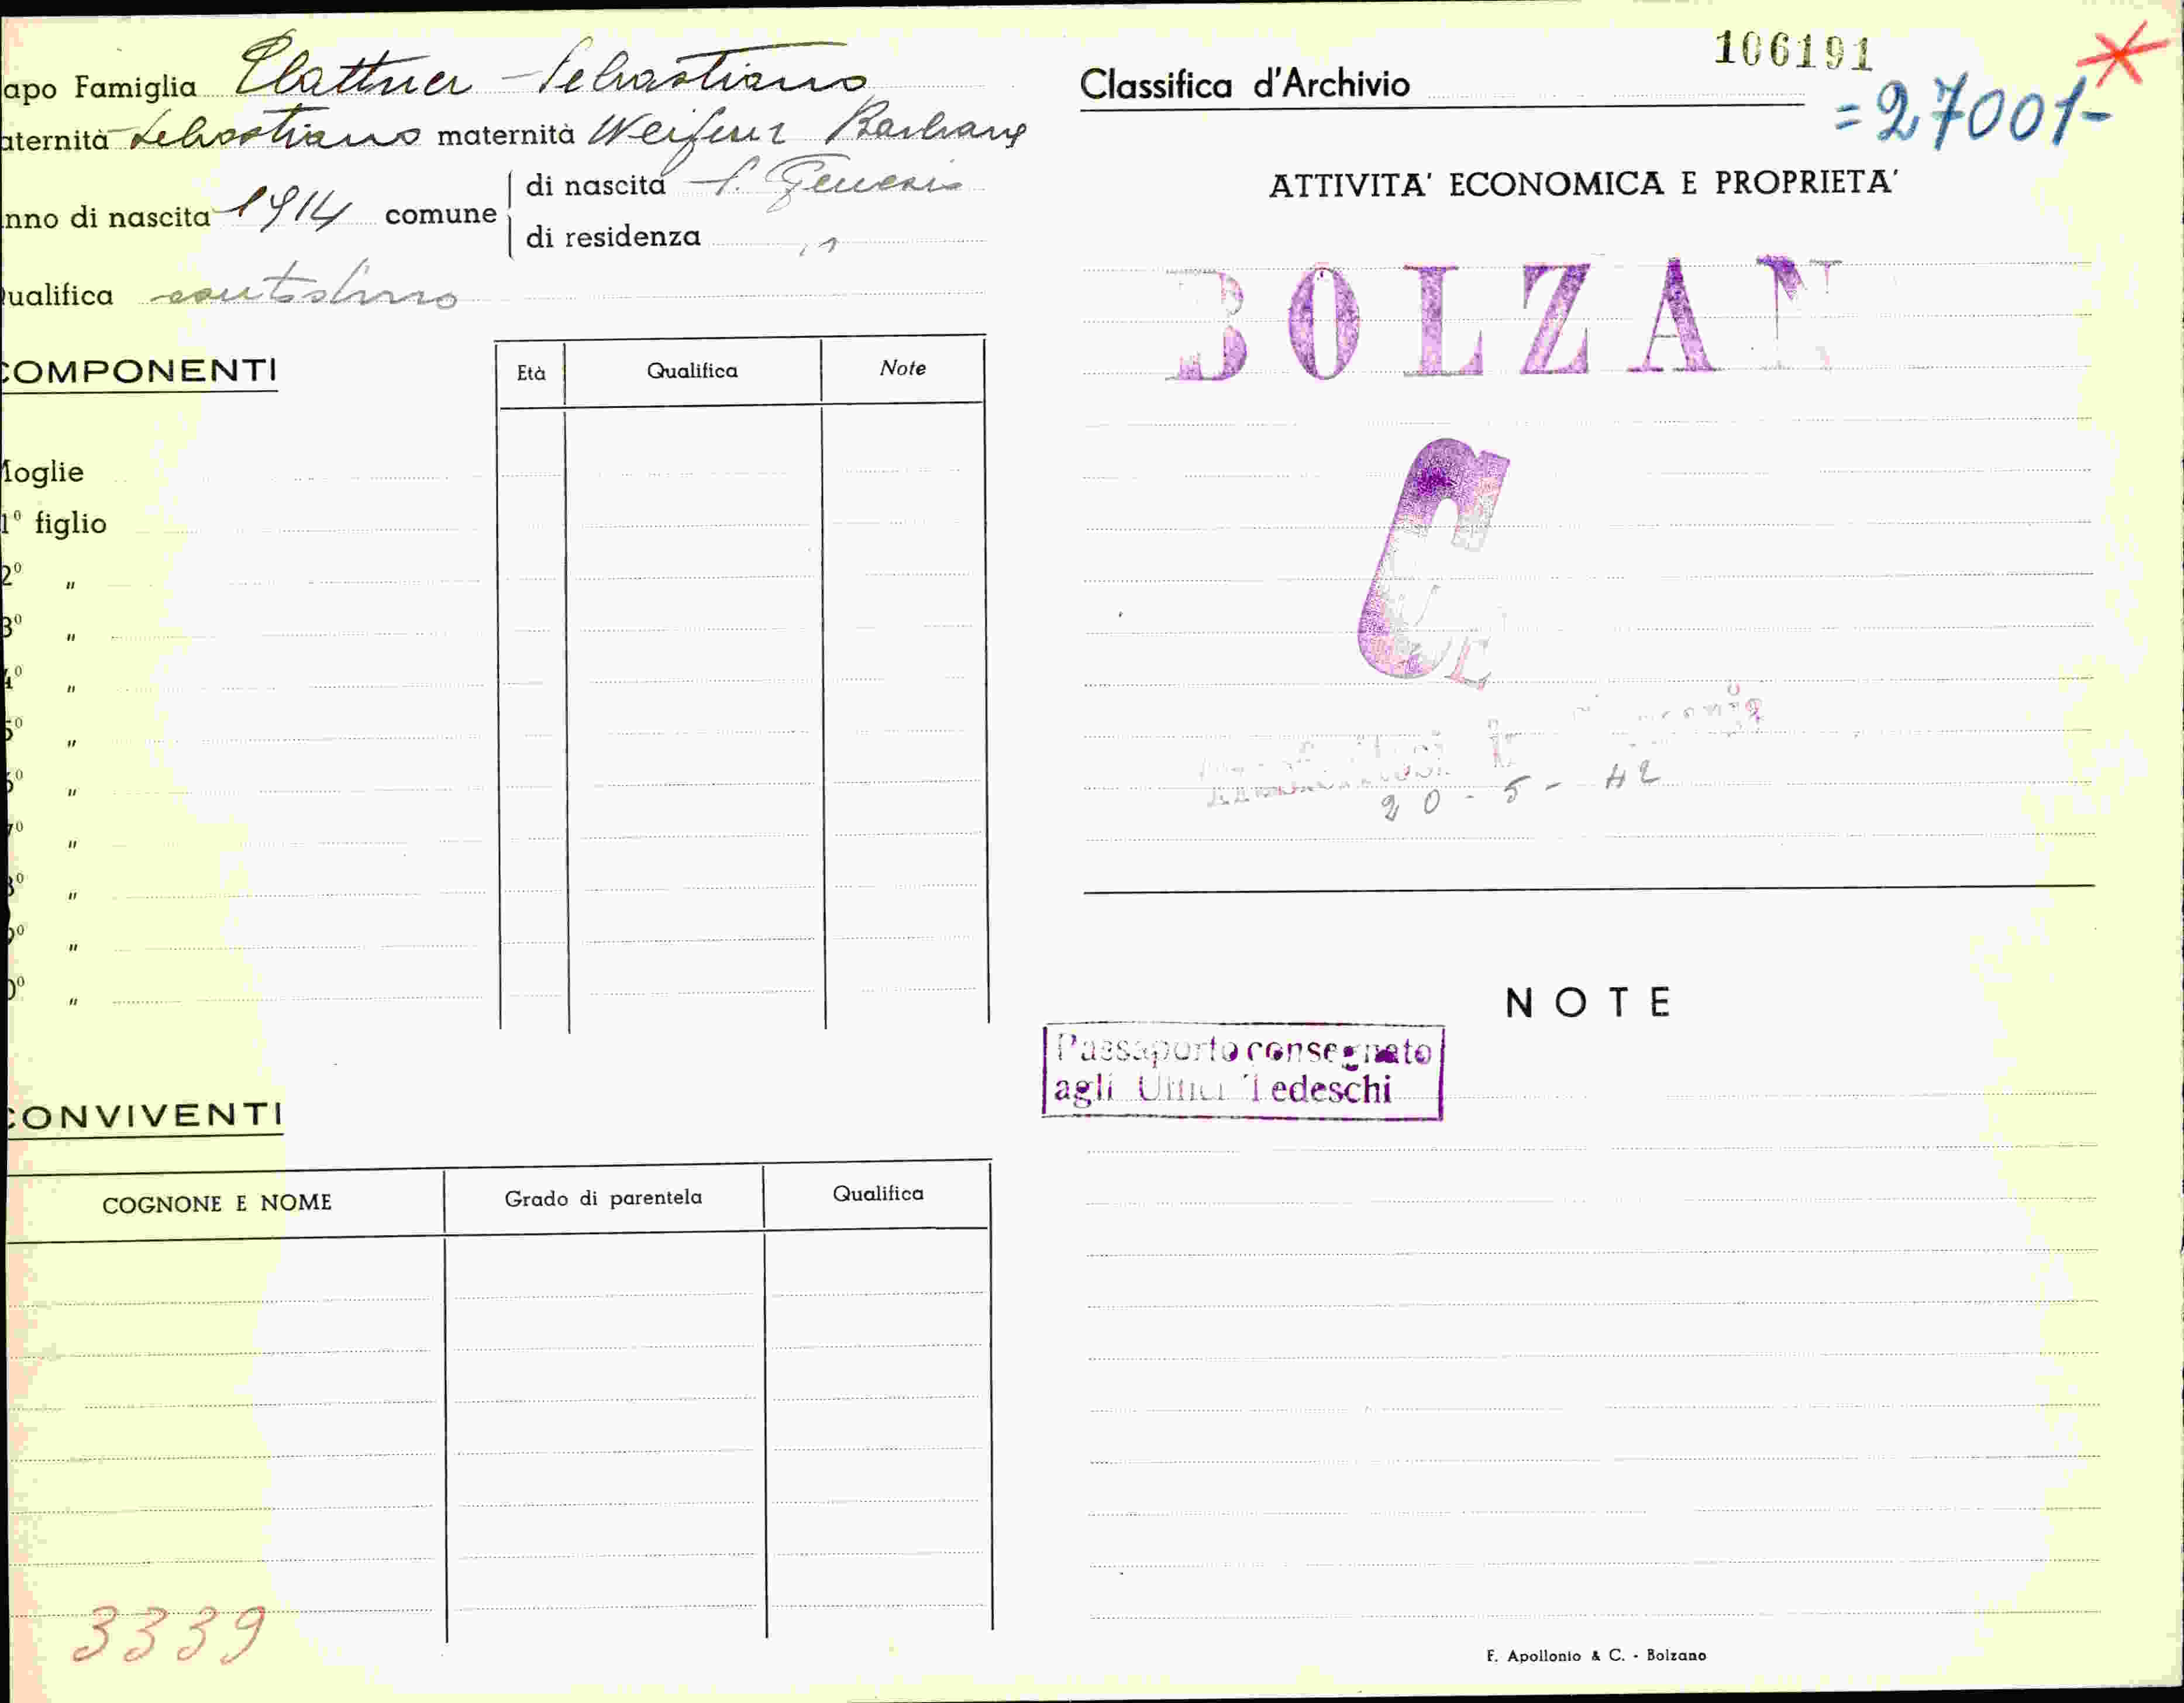 apo Famiglia Plattner - Sebastiano
aternità Sebastiano maternità Weifner Barbara
nno di nascita 1914 comune di nascita S. Genesio
di residenza "
ualifica contadino
COMPONENTI
Età Qualifica Note
Moglie
1º figlio
2º "
3º "
4º "
5º "
6º "
7º "
8º "
9º "
0º "
CONVIVENTI
COGNONE E NOME Grado di parentela Qualifica
3339
106191
Classifica d'Archivio
=27001-
ATTIVITA' ECONOMICA E PROPRIETA'
BOLZAN
C
20-5-42
NOTE
Passaporto consegnato
agli Uffici Tedeschi
F. Apollonio & C. - Bolzano